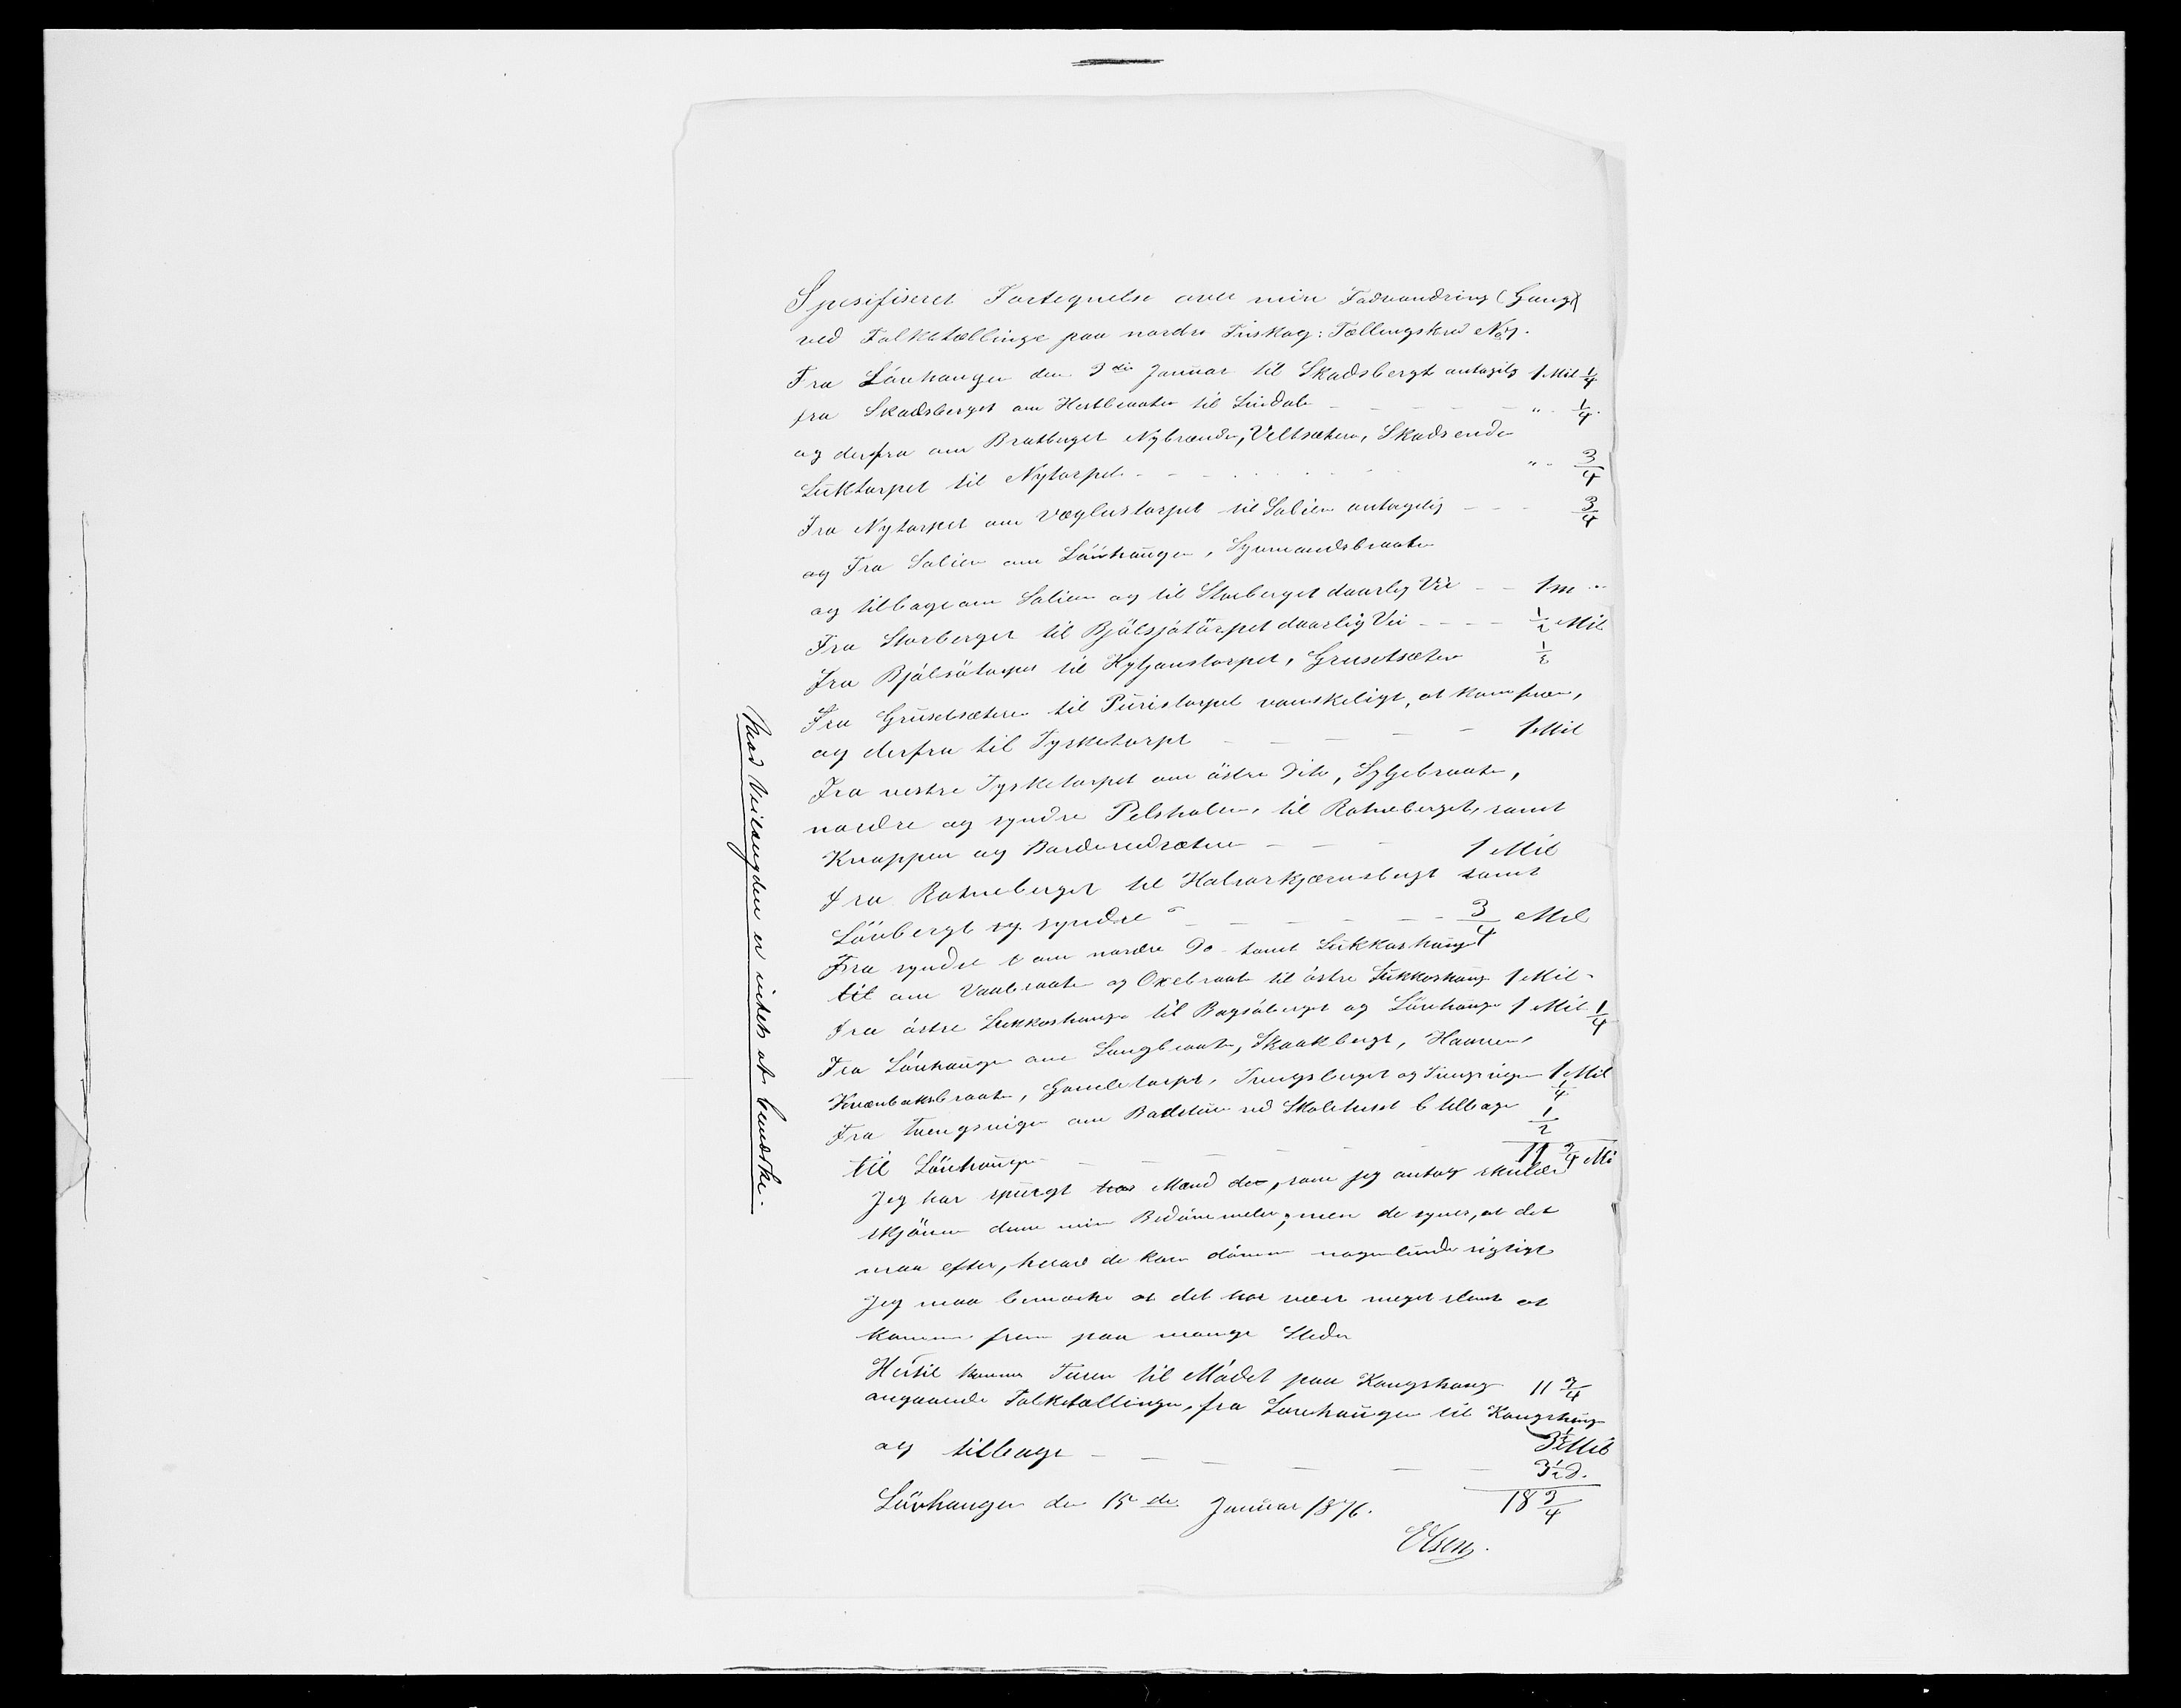 Spesifiseret Fortegnelse over min Fodvandring (Gang)
ved Folketællinge paa nordre Finskog: Tællingskred No 7.
Fra Lövhaugen den 3die Januar til Skadsbergt antagelig 1 Mil 1/4
fra Skadsberget om Hestbraaten til Lindale - - - - " 1/4.
og derfra om Bratberget Nybrænde, Veltsætern, Skadsenden
Luktorpet til Nytorpet - - - " - 3/4
Fra Nytorpet om Væglustorpet til Solien antagelig - - - 3/4
og Fra Solien om Lövhaugen, Symandsbraaten
og tilbage om Solien og til Storberget daarlig Vei - - 1 m "
Fra Storberget til Bjölsjötörpet daarlig Vei - - - - 1/2 Mil
Fra Bjölsötorpet til Kyljanstorpet, Grusetsæter 1/2
Fra Grusetsætern til Puristorpet vanskeligt, at kom frem,
og derfra til Tysketorpt - - - - - 1 Mil
Fra vestre Tysketorpet om östre Dito, Lyljebraaten,
nordre og syndre Pelsholen, til Rotneberget, samt
Knappen og sætern - - - 1 Mil
Fra Rotneberget til Halvorkjærnsbergt samt
Lövbergt og syndre - - - - - 3/4 Mil
Fra syndre t om nordre Do samt Lukkashaugt
til om Vaabraaten og Oxebraaten til östre Lukkoshaug 1 Mil -
Fra östre Lukkoshauge til Bogsöberget og Lövhauge 1 Mil 1/4
Fra Lövhaugen om Langbraaten, Skaakbergt, Haaren,
Kværnbaksbraaten, Gameltorpt, Tvengsberget og 1 Mil 1/4
Fra om ved Skolehuset tilbage 1/2
til Lövhaugen - - - - - 11 3/4 Mi
Jeg har spurgt Mænd der, som jeg antog skulde
skjönne denne min Bedömmelse, men de synes, at det
maa efter, hvad de kan dömme nogenlunde rigtigt
Jeg maa bemærke at det har været meget slemt at
komme frem paa mange Steder
Hertil kommer Turen til Mödet paa Kongshaug 11 3/4
angaaende Folketællingen, fra Lövhaugen til Kongshaug
3 1/2 Mil
og tilbage - - - - - - 3 1/2 d.
Lövhaugen den 15de Januar 1876. 18 3/4
Olsen.
Hvad Veilængden er vides at bemærke.